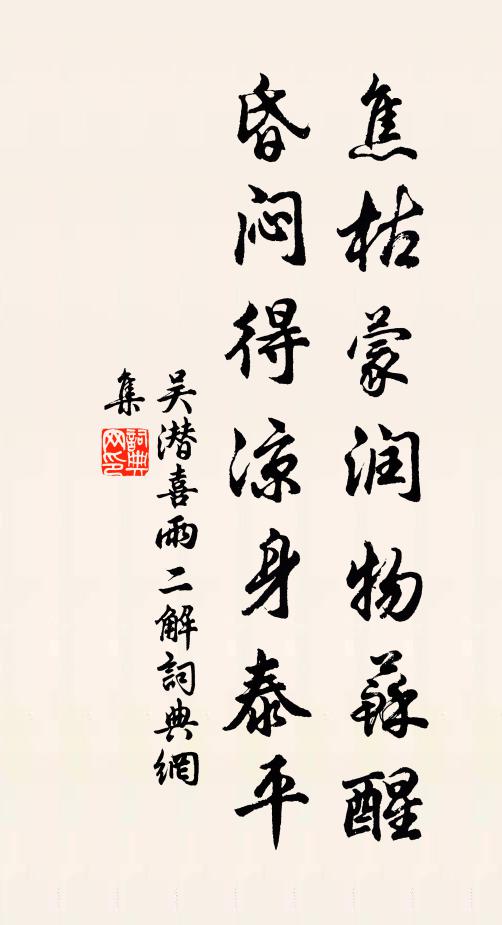 焦枯蒙润物蘇醒
昏闷得凉身泰平
吴潜喜雨二解詞典網
集
詞典
网印